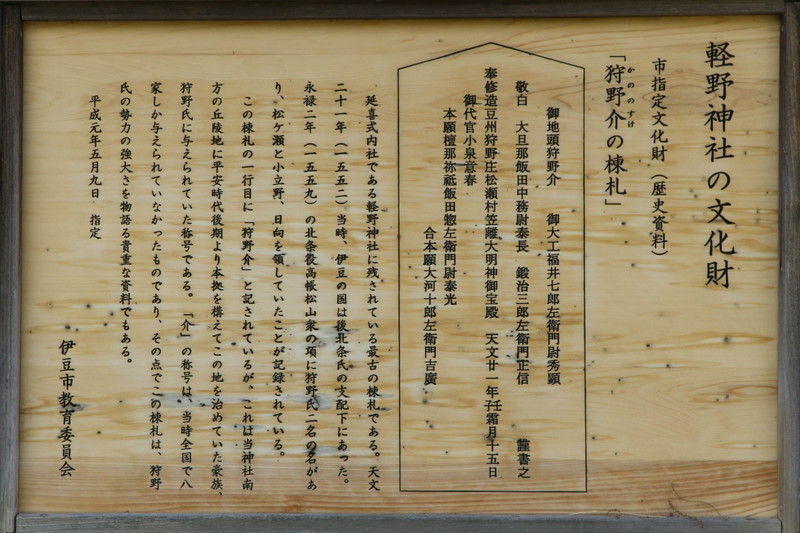 軽野神社の文化財
市指定文化財（歴史資料）
かののすけ
「狩野介の棟札」
御地頭狩野介　御大工福井七郎左衛門尉秀顕
敬白　大旦那飯田中務尉泰長　鍛治三郎左衛門正信　謹書之
奉修造豆州狩野庄松瀬村笠離大明神御宝殿　天文廿一年壬子霜月十五日
御代官小泉意春
本願檀那祢祗飯田惣左衛門尉泰光
合本願大河十郎左衛門吉廣
延喜式内社である軽野神社に残されている最古の棟札である。天文
二十一年（一五五二）当時、伊豆の国は後北条氏の支配下にあった。
永禄二年（一五五九）の北条役高帳松山衆の項に狩野氏二名の名があ
り、松ケ瀬と小立野、日向を領していたことが記録されている。
この棟札の一行目に「狩野介」と記されているが、これは当神社南
方の丘陵地に平安時代後期より本拠を構えてこの地を治めていた豪族、
狩野氏に与えられていた称号である。「介」の称号は、当時全国で八
家しか与えられていなかったものであり、その点でこの棟札は、狩野
氏の勢力の強大さを物語る貴重な資料でもある。
平成元年五月九日　指定
伊豆市教育委員会